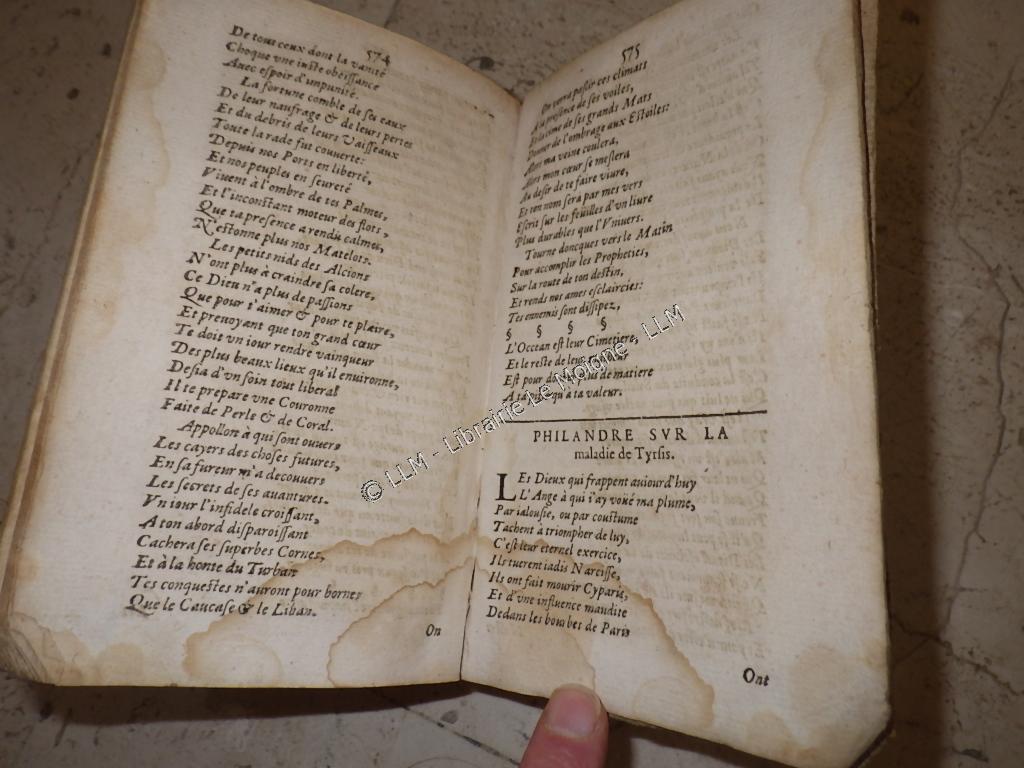 574
De tous ceux dont la vanité
Choque vne iuste obeissance
Auec espoir d'impunité.
La fortune comble de ses eaux
De leur naufrage & de leurs pertes
Et du debris de leurs Vaisseaux
Toute la rade fut couuerte:
Depuis nos Ports en liberté,
Et nos peuples en seureté
Viuent à l'ombre de tes Palmes,
Et l'inconstant moteur des flots,
Que ta presence a rendu calmes,
N'estonne plus nos Matelots.
Les petits nids des Alcions
N'ont plus à craindre sa colere,
Ce Dieu n'a plus de passions
Que pour t'aimer & pour te plaire,
Et preuoyant que ton grand cœur
Te doit vn iour rendre vainqueur
Des plus beaux lieux qu'il enuironne,
Desia d'vn soin tout liberal
Il te prepare vne Couronne
Faite de Perle & de Coral.
Appollon à qui sont ouuers
Les cayers des choses futures,
En sa fureur m'a decouuers
Les secrets de ses auantures.
Vn iour l'infidele croissant,
A ton abord disparoissant
Cachera ses superbes Cornes,
Et à la honte du Turban
Tes conquestes n'auront pour bornes
Que le Caucase & le Liban.
On
575
On verra passer ces climats
A la presence de ses voiles,
Et la cime de ses grands Mats
Donner de l'ombrage aux Estoiles:
Alors ma veine coulera,
Alors mon cœur se meslera
Au desir de te faire viure,
Et ton nom sera par mes vers
Escrit sur les feuilles d'vn liure
Plus durables que l'Vniuers.
Tourne doncques vers le Matin
Pour accomplir les Propheties,
Sur la route de ton destin,
Et rends nos ames esclaircies:
Tes ennemis sont dissipez,
§ § § §
L'Ocean est leur Cimetiere,
Et le reste de leur
Est pour plus de matiere
A ta qu'à ta valeur.
PHILANDRE SVR LA
maladie de Tyrsis.
LEt Dieux qui frappent auiourd'huy
L'Ange à qui i'ay voüé ma plume,
Par ialousie, ou par coustume
Tachent à triompher de luy,
C'est leur eternel exercice,
Ils tuerent iadis Narcisse,
Ils ont fait mourir Cyparis,
Et d'vne influence maudite
Dedans les bourbes de Paris
Ont
© LLM - Librairie Le Moigne - LLM